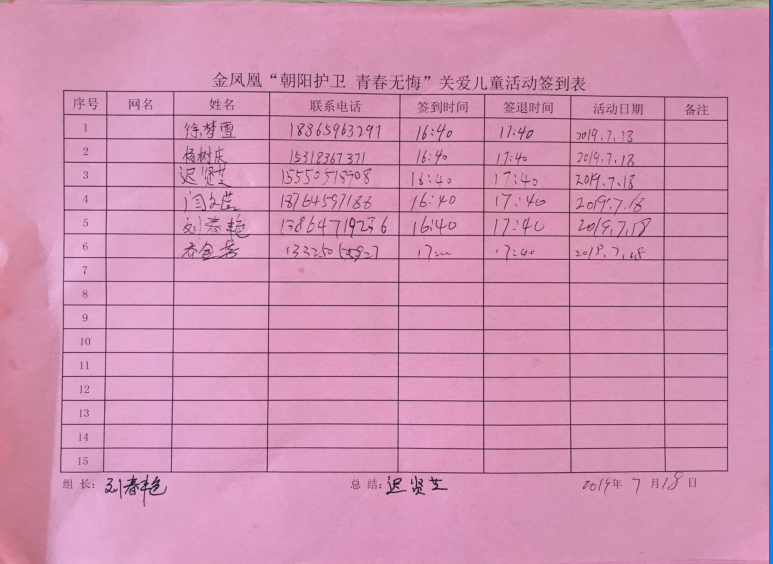 金凤凰“朝阳护卫 青春无悔”关爱儿童活动签到表
序号 网名 姓名 联系电话 签到时间 签退时间 活动日期 备注
1 徐梦雪 18365963297 16:40 17:40 2019.7.18
2 杨树庆 15318367371 16:40 17:40 2019.7.18
3 迟贤芝 16:40 17:40 2019.7.18
4 闫文莲 18764597186 16:40 17:40 2019.7.18
5 刘春艳 16:40 17:40 2019.7.18
6 17:40 2019.7.18
7
8
9
10
11
12
13
14
15
组 长: 刘春艳 总 结: 迟贤芝 2019年 7 月18日